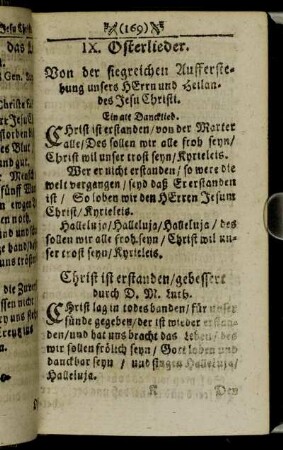 (169)
IX. Osterlieder.
Von der siegreichen Aufferste-
hung unsers HErrn und Heilan-
des Jesu Christi.
Ein alt Dancklied.
CHrist ist erstanden/von der Marter
alle/Des sollen wir alle froh seyn/
Christ wil unser trost seyn/Kyrieleis.
Wer er nicht erstanden/so were die
welt vergangen/seyd daß Er erstanden
ist/ So loben wir den HErren Jesum
Christ/Kyrieleis.
Halleluja/Halleluja/Halleluja/ des
sollen wir alle froh seyn/Christ wil un-
ser trost seyn/Kyrieleis.
Christ ist erstanden/gebessert
durch D. M. Luth.
CHrist lag in todes banden/für unser
sünde gegeben/der ist wieder erstan-
den/und hat uns bracht das Leben/des
wir sollen frölich seyn/Gott loben und
danckbar seyn/ und singen Halleluja/
Halleluja.
K Den